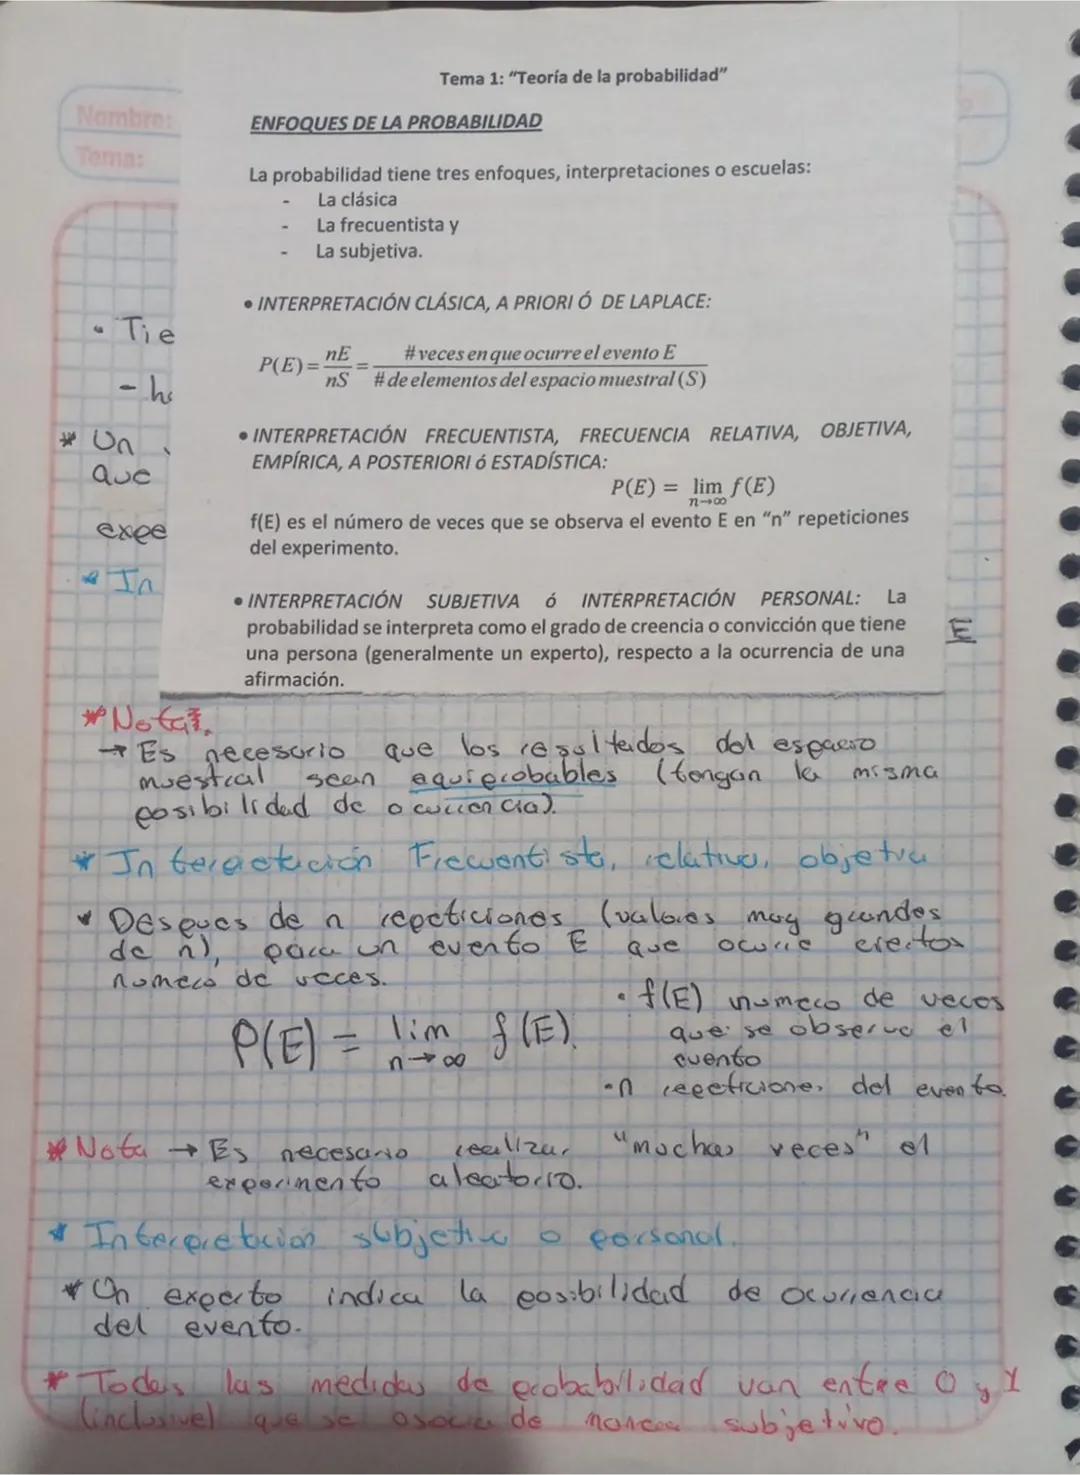 Nombre:
Tema:
Tema 1: "Teoría de la probabilidad"
ENFOQUES DE LA PROBABILIDAD
La probabilidad tiene tres enfoques, interpretaciones o escuelas:
- La clásica
- La frecuentista y
- La subjetiva.
• INTERPRETACIÓN CLÁSICA, A PRIORI Ó DE LAPLACE:
P(E) = nE/nS = # veces en que ocurre el evento E / # de elementos del espacio muestral (S)
• INTERPRETACIÓN FRECUENTISTA, FRECUENCIA RELATIVA, OBJETIVA,
EMPÍRICA, A POSTERIORI ó ESTADÍSTICA:
P(E) = lim f(E)
n→∞
f(E) es el número de veces que se observa el evento E en "n" repeticiones
del experimento.
• INTERPRETACIÓN SUBJETIVA ó INTERPRETACIÓN PERSONAL: La
probabilidad se interpreta como el grado de creencia o convicción que tiene
una persona (generalmente un experto), respecto a la ocurrencia de una
afirmación.
• Tie
- h
* Un
que
expe
* In
E
* Nota:
→ Es necesario que los resultados del espacio
muestral sean equiprobables (tengan la misma
posibilidad de ocurrencia).
* Interpretación Frecuentista, relativa, objetiva
* Despues de n repeticiones (valores muy grandes
de n), para un evento E que ocurre ciertos
numero de veces.
P(E) = lim f(E).
n→∞
• f(E) numero de veces
que se observa el
evento
• n repeticiones del evento.
* Nota → Es necesario realizar "muchas veces" el
experimento aleatorio.
* Interpretación subjetiva o personal.
* Un experto indica la posibilidad de ocurrencia
del evento.
* Todas las medidas de probabilidad van entre 0 y 1
(inclusive) que se asocia de manera subjetivo.